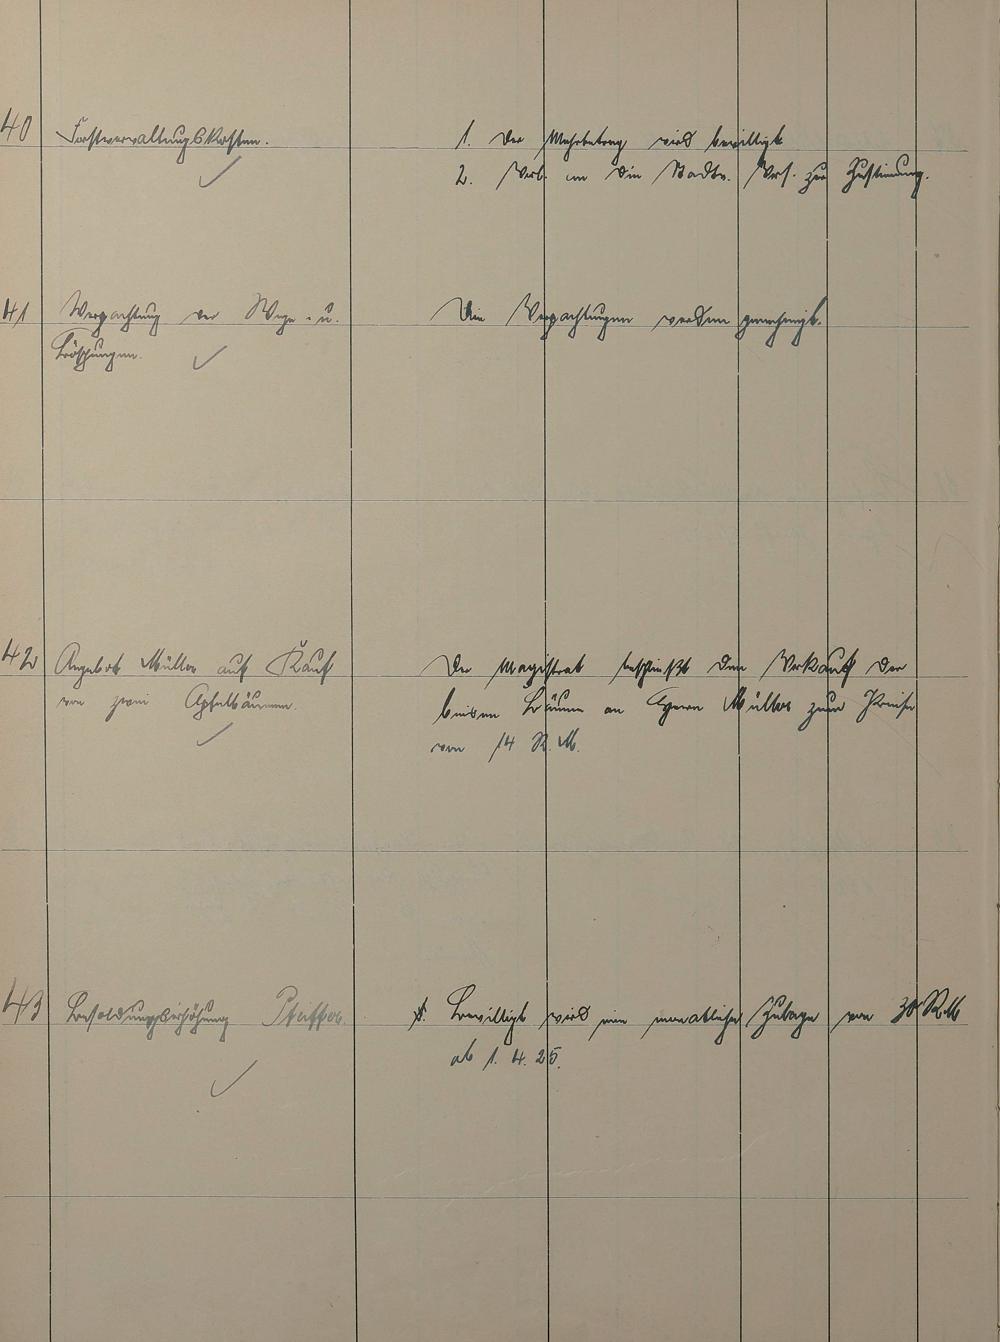 40 Forstverwaltungskosten.
1. Der Mehrbetrag wird bewilligt
2. Vorl. an die Stadtv. Vers. zur Zustimmung.
41 Verpachtung der Wege- u.
Böschungen.
Die Verpachtungen werden genehmigt.
42 Angebot Müller auf Kauf
von zwei Apfelbäumen.
Der Magistrat beschließt den Verkauf der
beiden Bäume an Herrn Müller zum Preise
von 14 R.M.
43 Besoldungserhöhung Pfeiffer.
Bewilligt wird eine monatliche Zulage von 30 R.M
ab 1. 4. 25.